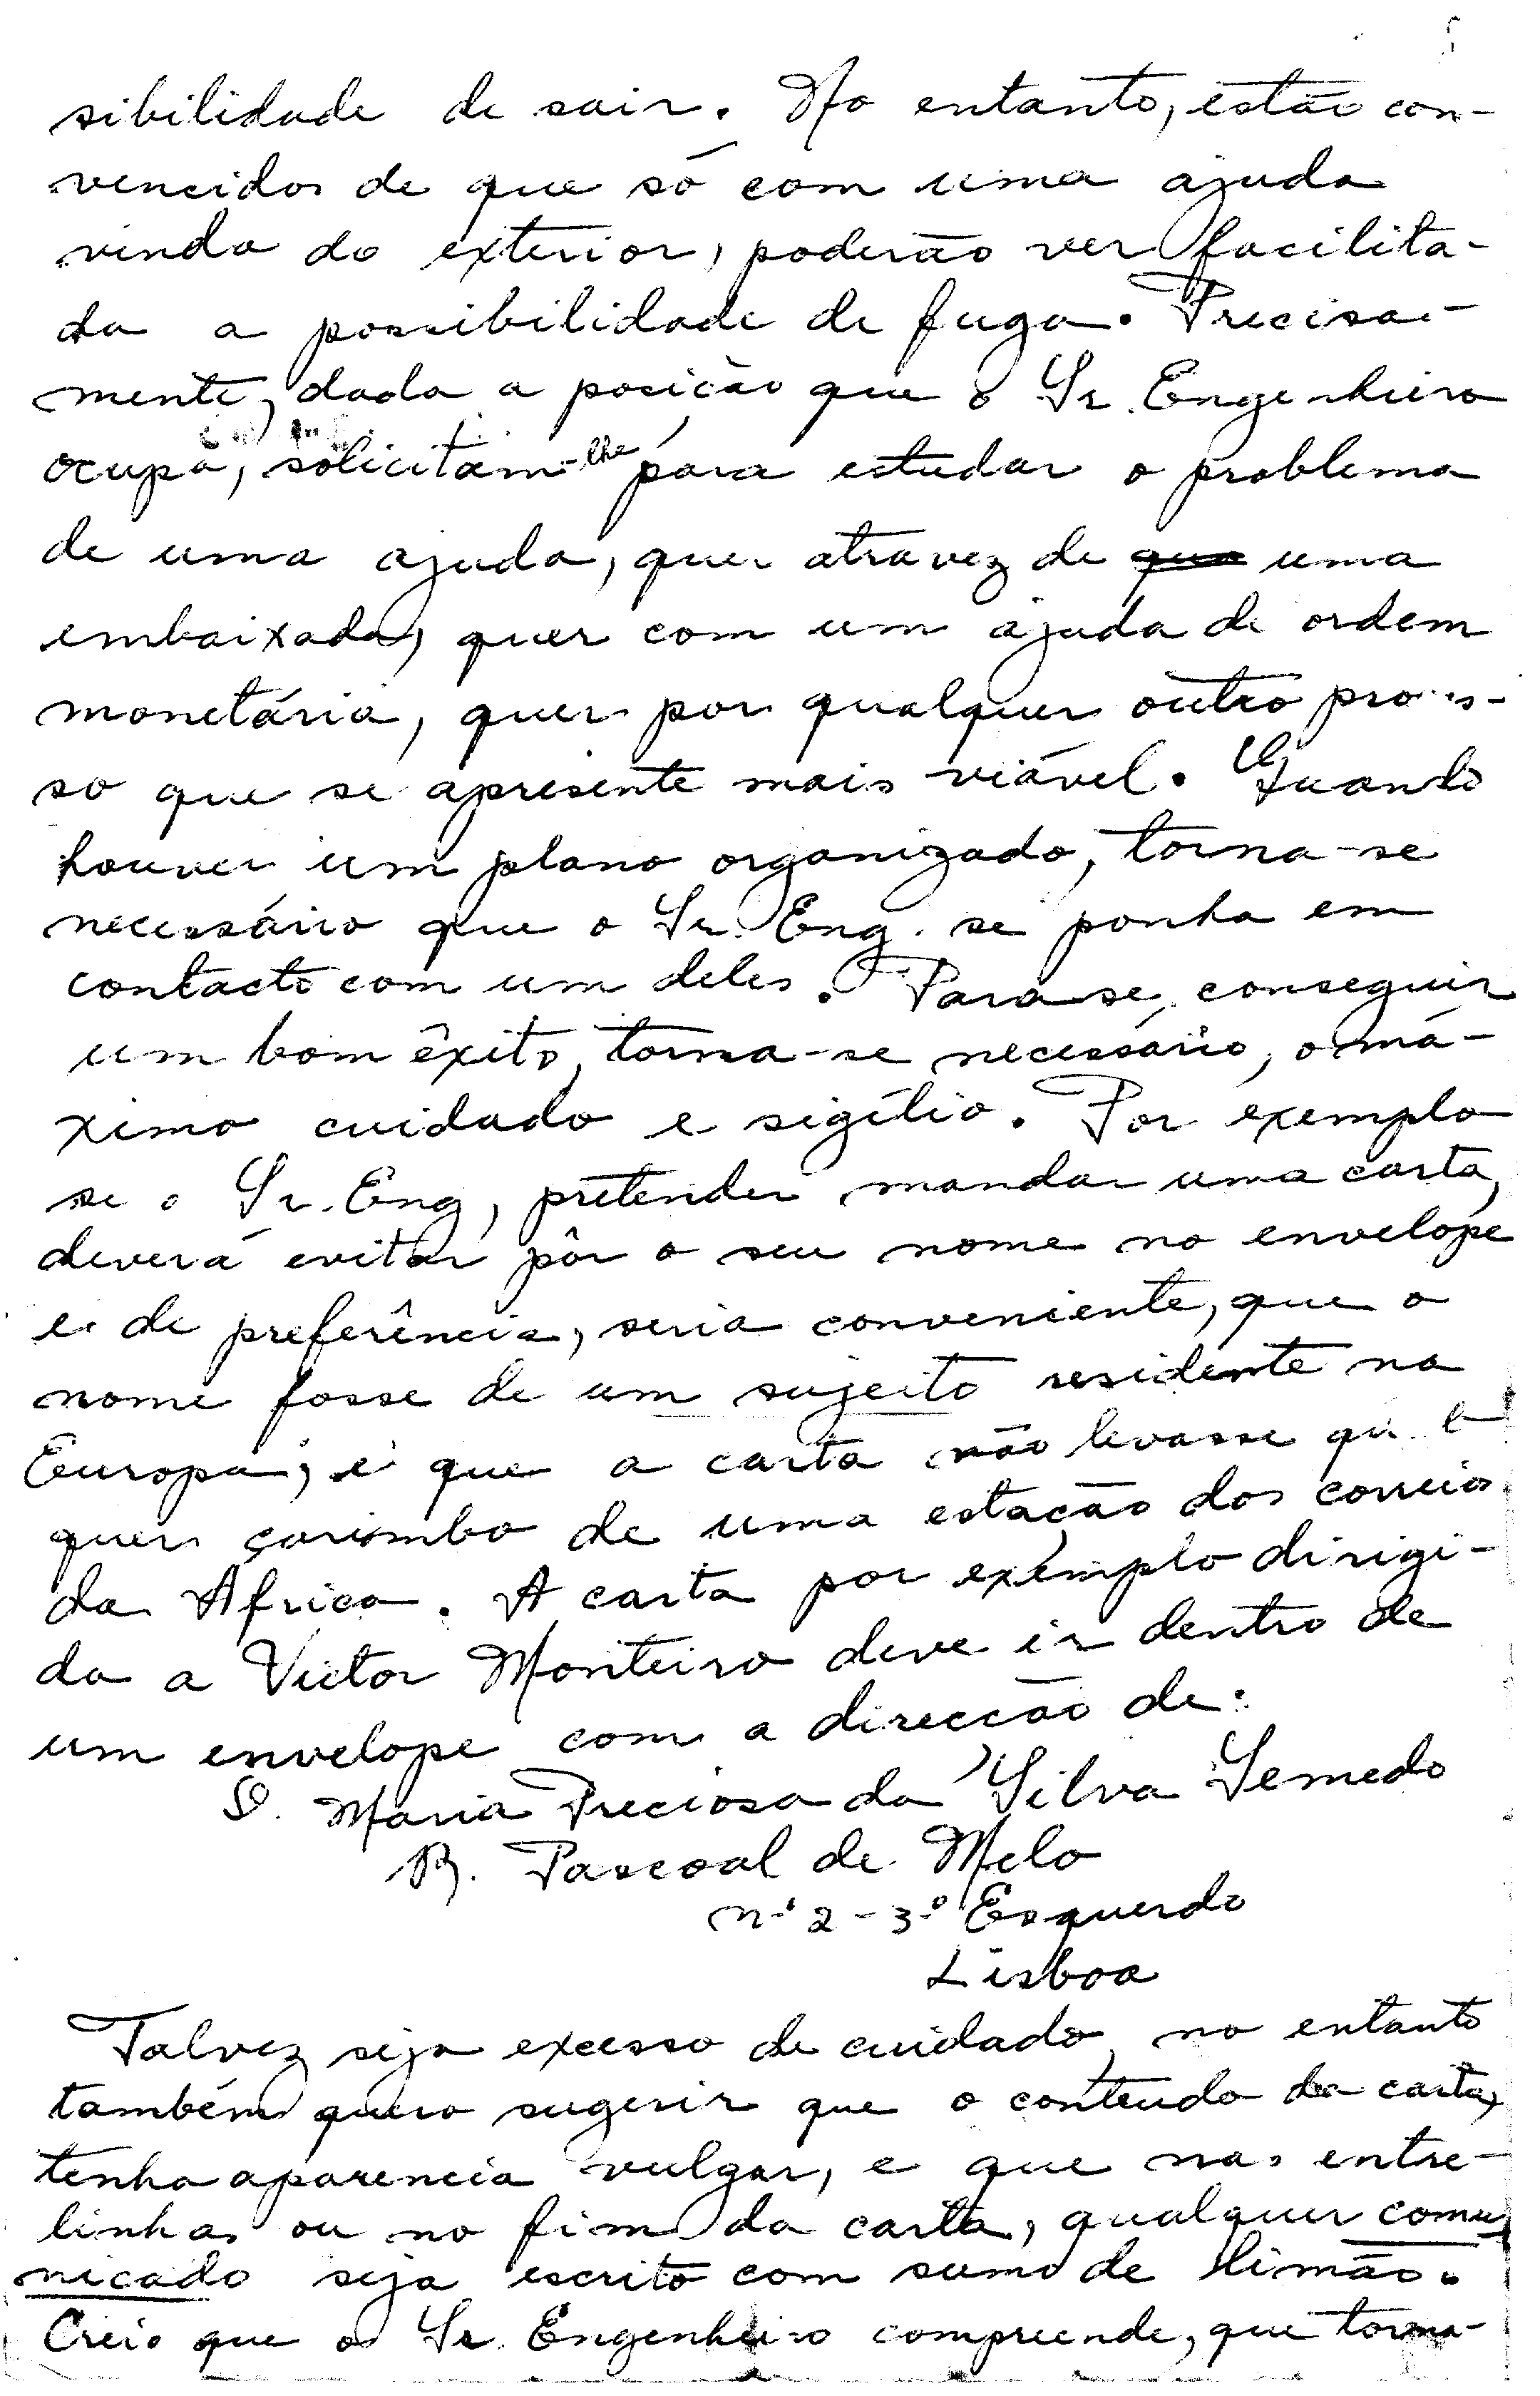 sibilidade de sair. No entanto, estão con-
vencidos de que só com uma ajuda
vinda do exterior, poderão ver facilita-
da a possibilidade de fuga. Precisa-
mente, dada a posição que o Sr. Engenheiro
ocupa, solicitam-lhe para estudar o problema
de uma ajuda, quer atravez de uma
embaixada, quer com um ajuda de ordem
monetária, quer por qualquer outro proces-
so que se apresente mais viável. Quando
houver um plano organizado, torna-se
necessário que o Sr. Eng. se ponha em
contacto com um deles. Para se, conseguir
um bom êxito, torna-se necessário, o má-
ximo cuidado e sigílio. Por exemplo
se o Sr. Eng, pretender mandar uma carta,
deverá evitar pôr o seu nome no envelope
e de preferência, seria conveniente, que o
nome fosse de um sujeito residente na
Europa, e que a carta não levasse qual-
quer carimbo de uma estação dos correios
da Africa. A carta por exemplo dirigi-
da a Victor Monteiro deve ir dentro de
um envelope com a direcção de:
D. Maria Preciosa da Silva Semedo
R. Pascoal de Melo
nº 2 - 3º Esquerdo
Lisboa
Talvez seja excesso de cuidado, no entanto
também quero sugerir que o conteudo da carta,
tenha aparencia vulgar, e que nas entre-
linhas ou no fim da carta, qualquer comu-
nicado seja escrito com sumo de limão.
Creio que o Sr. Engenheiro compreende, que torna-